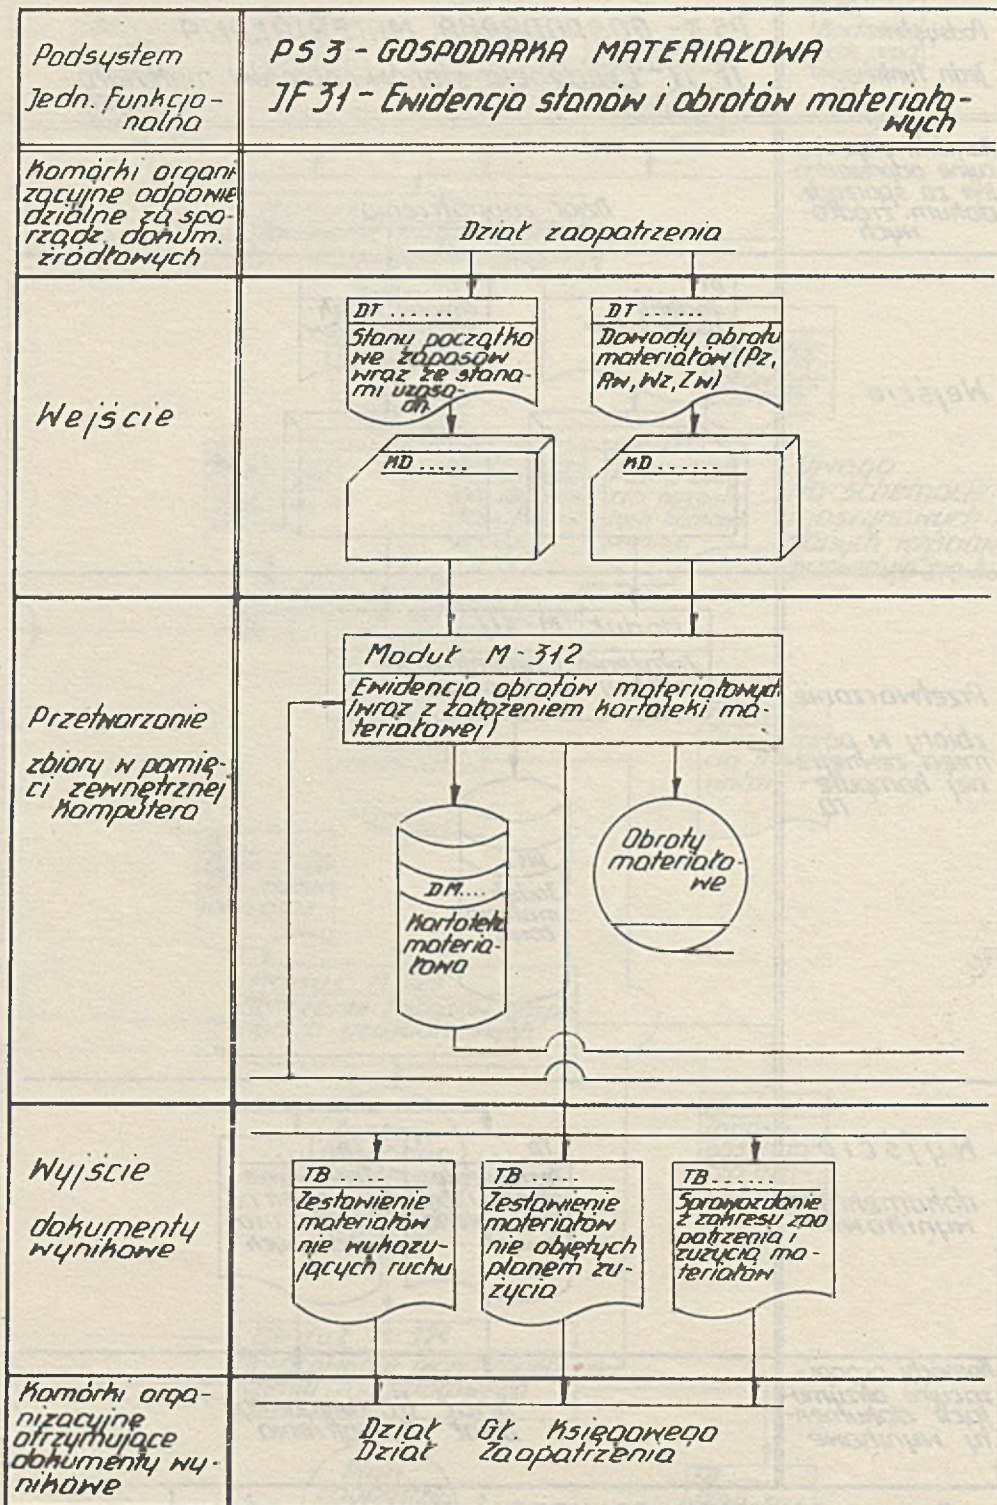 Podsystem
Jedn. funkcjo-
nalna
PS 3 - GOSPODARKA MATERIAŁOWA
JF 31 - Ewidencja stanów i obrotów materiało-
wych
Komórki organi
zacyjne odpowie
dzialne za spo-
rządz. dokum.
źródłowych
Dział zaopatrzenia
Wejście
DT ......
Stany początko
we zapasów
wraz ze stana-
mi uzasa-
dn.
DT ......
Dowody obrotu
materiałów (Pz,
Rw, Wz, Zw)
KD .....
KD ......
Przetwarzanie
zbiory w pamię-
ci zewnętrznej
Komputera
Moduł M-312
Ewidencja obrotów materiałowych
(wraz z założeniem kartoteki ma-
teriałowej)
DM....
Kartoteka
materia-
łowa
Obroty
materiało-
we
Wyjście
dokumenty
wynikowe
TB .....
Zestawienie
materiałów
nie wykazu-
jących ruchu
TB ......
Zestawienie
materiałów
nie objętych
planem zu-
życia
TB ......
Sprawozdanie
z zakresu zao
patrzenia i
zużycia ma-
teriałów
Komórki orga-
nizacyjne
otrzymujące
dokumenty wy-
nikowe
Dział Gł. Księgowego
Dział Zaopatrzenia